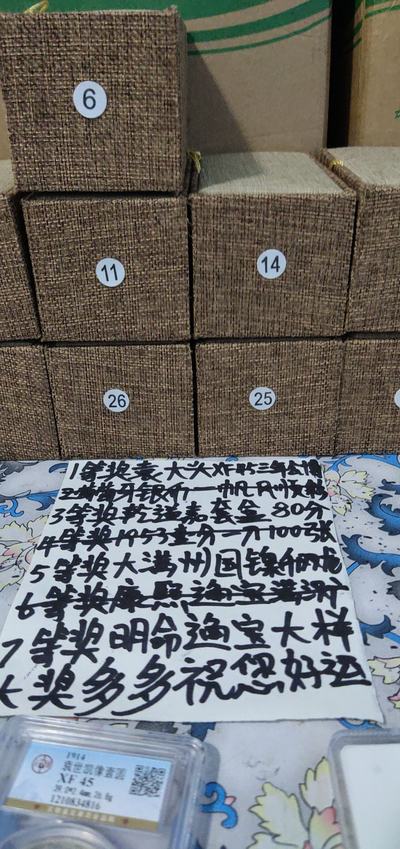 6
11
14
26
25
1等奖袁大头XF45三年
3等奖乾隆 套盒 80分
4等奖1953壹分一刀100张
5等奖大满州国镍币
6等奖康熙通宝满汉
7等奖明命通宝大样
大奖多多祝您好运
1914
袁世凯像壹圆
XF 45
1210834816